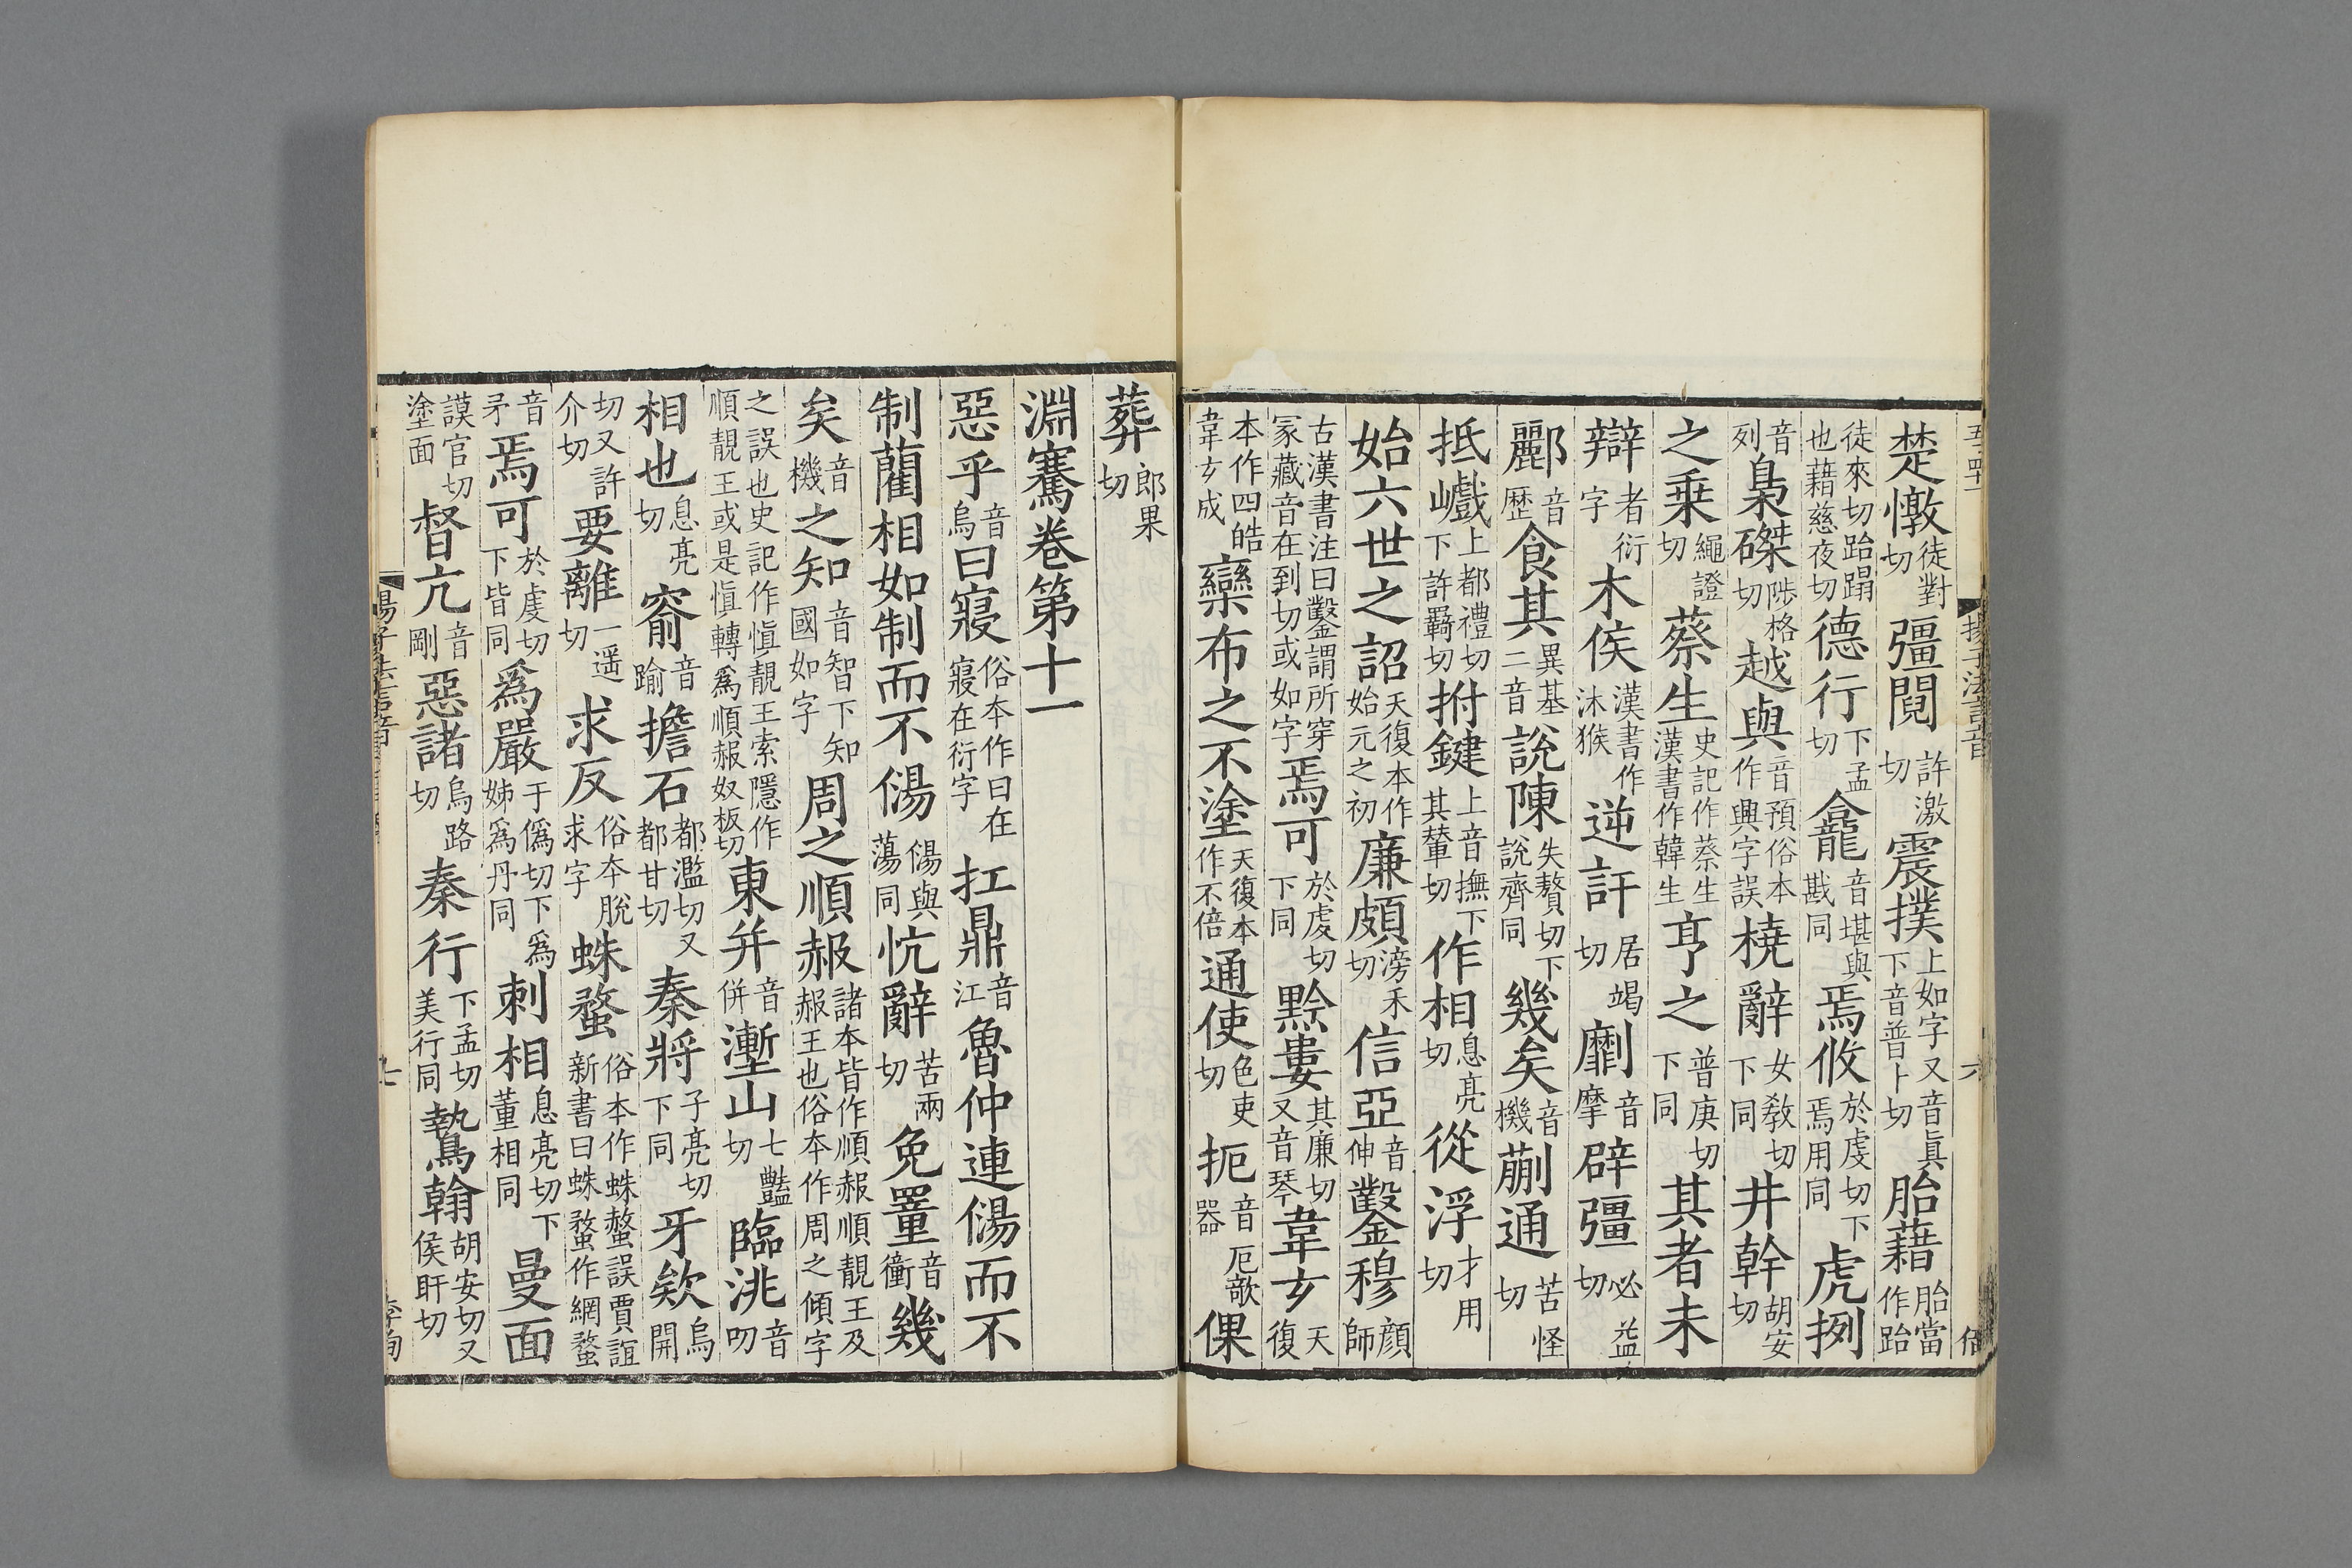 楚憞徒對切彊閱許激切震撲上如字又音眞下音普卜切胎藉胎當作跆
徒來切跆蹋也藉慈夜切德行下孟切龕音堪與戡同焉攸於虔切下焉用同虎捌
音列梟磔陟格切越與音預俗本作興字誤橈辭女敎切下同井幹胡安切
之乗繩證切蔡生史記作蔡生漢書作韓生亨之普庚切下同其者未
辯者衍字木侯漢書作沐猴逆訐居竭切劘音摩辟彊必益切
酈音歷食其異基二音說陳失贅切下說齊同幾矣音機蒯通苦怪切
抵巇上都禮切下許羇切拊鍵上音撫下其輦切作相息亮切從浮才用切
始六世之詔天復本作始元之初廉頗滂禾切信亞音伸鑿穆顔師
古漢書注曰鑿謂所穿冡藏音在到切或如字焉可於虔切下同黔婁其廉切又音琴韋玄天復
本作四皓韋玄成欒布之不塗天復本作不倍通使色吏切扼音厄欹器倮
葬郎果切
淵騫卷第十一
惡乎音烏曰寢俗本作曰在寢在衍字扛鼎音江魯仲連愓而不
制藺相如制而不愓愓與蕩同忼辭苦兩切免罿音衝幾
矣音機之知音智下知國如字周之順赧諸本皆作順赧順靚王及赧王也俗本作周之傾字
之誤也史記作愼靚王索隱作順靚王或是愼轉爲順赧奴板切東幷音併塹山七豔切臨洮音叨
相也息亮切窬音踰擔石都濫切又都甘切秦將子亮切下同牙欸烏開
切又許介切要離一遥切求反俗本脫求字蛛蝥俗本作蛛螯誤賈誼新書曰蛛蝥作網蝥
音矛焉可於虔切下皆同爲嚴于僞切下爲姊爲丹同刺相息亮切下董相同曼面
謨官切塗面督亢音剛惡諸烏路切秦行下孟切美行同鷙翰胡安切又侯旰切